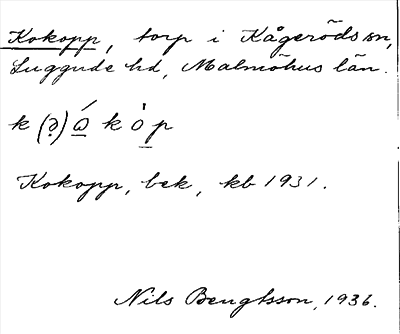 Kokopp, torp i Kågeröds sn,
Luggude hd, Malmöhus län.
k (ə) ó k o p
Kokopp, bek, kb 1931.
Nils Bengtsson, 1936.